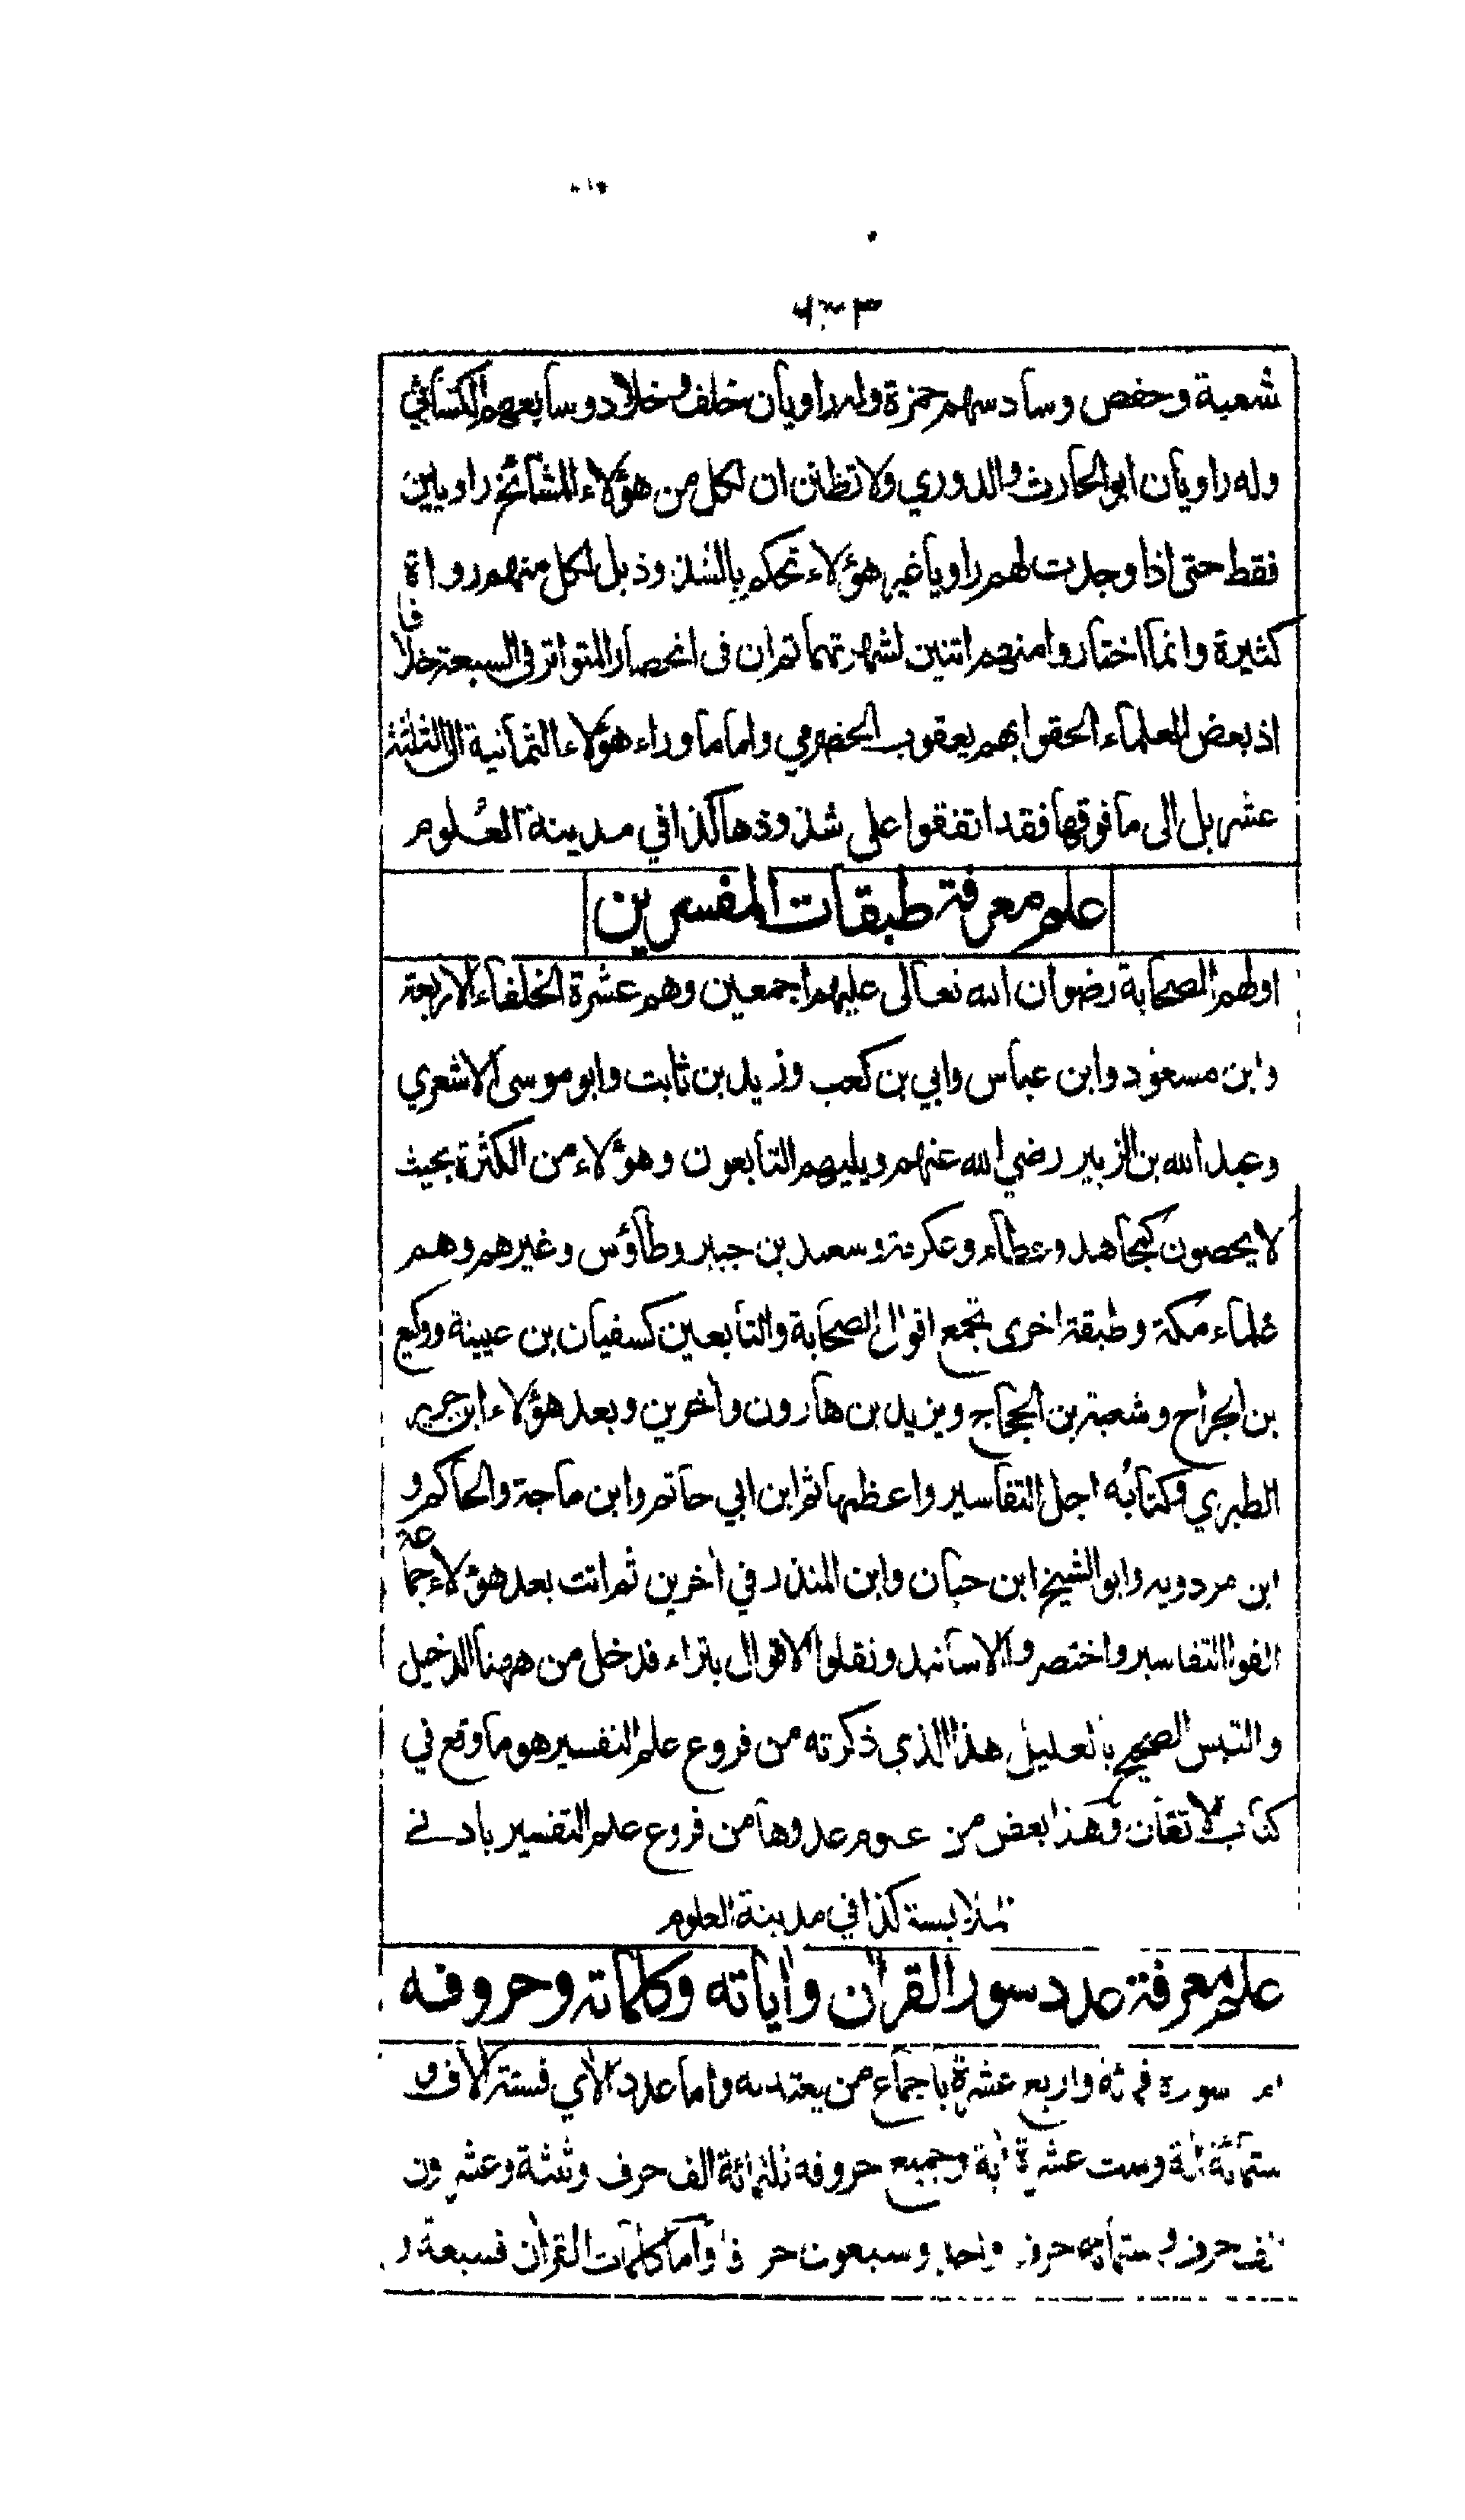 شعبة وحفص وسادسهم حمزة وله راويان خلف وخلاد وسابعهم الكسائي
وله راويان ابو الحارث والدوري ولا تظنن ان لكل من هؤلاء المشائخ راويين
فقط حتى اذا وجدت لهم راويا غير هؤلاء تحكم بالشذوذ بل لكل منهم رواة
كثيرة وانما اختاروا منهم اثنين لشهرتهما ثم ان في انحصار المتواتر في السبعة خلافا
اذ بعض العلماء الحقوا بهم يعقوب الحضرمي واما ما وراء هؤلاء الثمانية الى الثلثة
عشر بل الى ما فوقها فقد اتفقوا على شذوذها كذا في مدينة العلوم
علم معرفة طبقات المفسرين
اولهم الصحابة رضوان الله تعالى عليهم اجمعين وهم عشرة الخلفاء الاربعة
وابن مسعود وابن عباس وابي بن كعب وزيد بن ثابت وابو موسى الاشعري
وعبد الله بن الزبير رضي الله عنهم ويليهم التابعون وهؤلاء من الكثرة بحيث
لا يحصون كمجاهد وعطاء وعكرمة وسعيد بن جبير وطاؤس وغيرهم وهم
علماء مكة وطبقة اخرى تجمع اقوال الصحابة والتابعين كسفيان بن عيينة ووكيع
بن الجراح وشعبة بن الحجاج ويزيد بن هارون وآخرين وبعد هؤلاء ابن جرير
الطبري وكتابُه اجل التفاسير واعظمها ثم ابن ابي حاتم وابن ماجة والحاكم و
ابن مردويه وابو الشيخ ابن حبان وابن المنذر في آخرين ثم اتت بعد هؤلاء جماعة
الفوا التفاسير واختصروا الاسانيد ونقلوا الاقوال بتراء فدخل من ههنا الدخيل
والتبس الصحيح بالعليل هذا الذي ذكرته من فروع علم التفسير هو ما وقع في
كتاب الاتقان وهذا بعض من علوم عدوها من فروع علم التفسير بادنى
ملابسة كذا في مدينة العلوم
علم معرفة عدد سور القرآن وآياته وكلماته وحروفه
سورة فمائة واربع عشرة باجماع من يعتد به واما عدد الآي فستة آلاف و
ستمائة آية وست عشرة آية وجميع حروفه ثلثمائة الف حرف وثلثة وعشرون
الف حرف وستمائة حرف واحد وسبعون حرفا واما كلمات القرآن فسبعة و